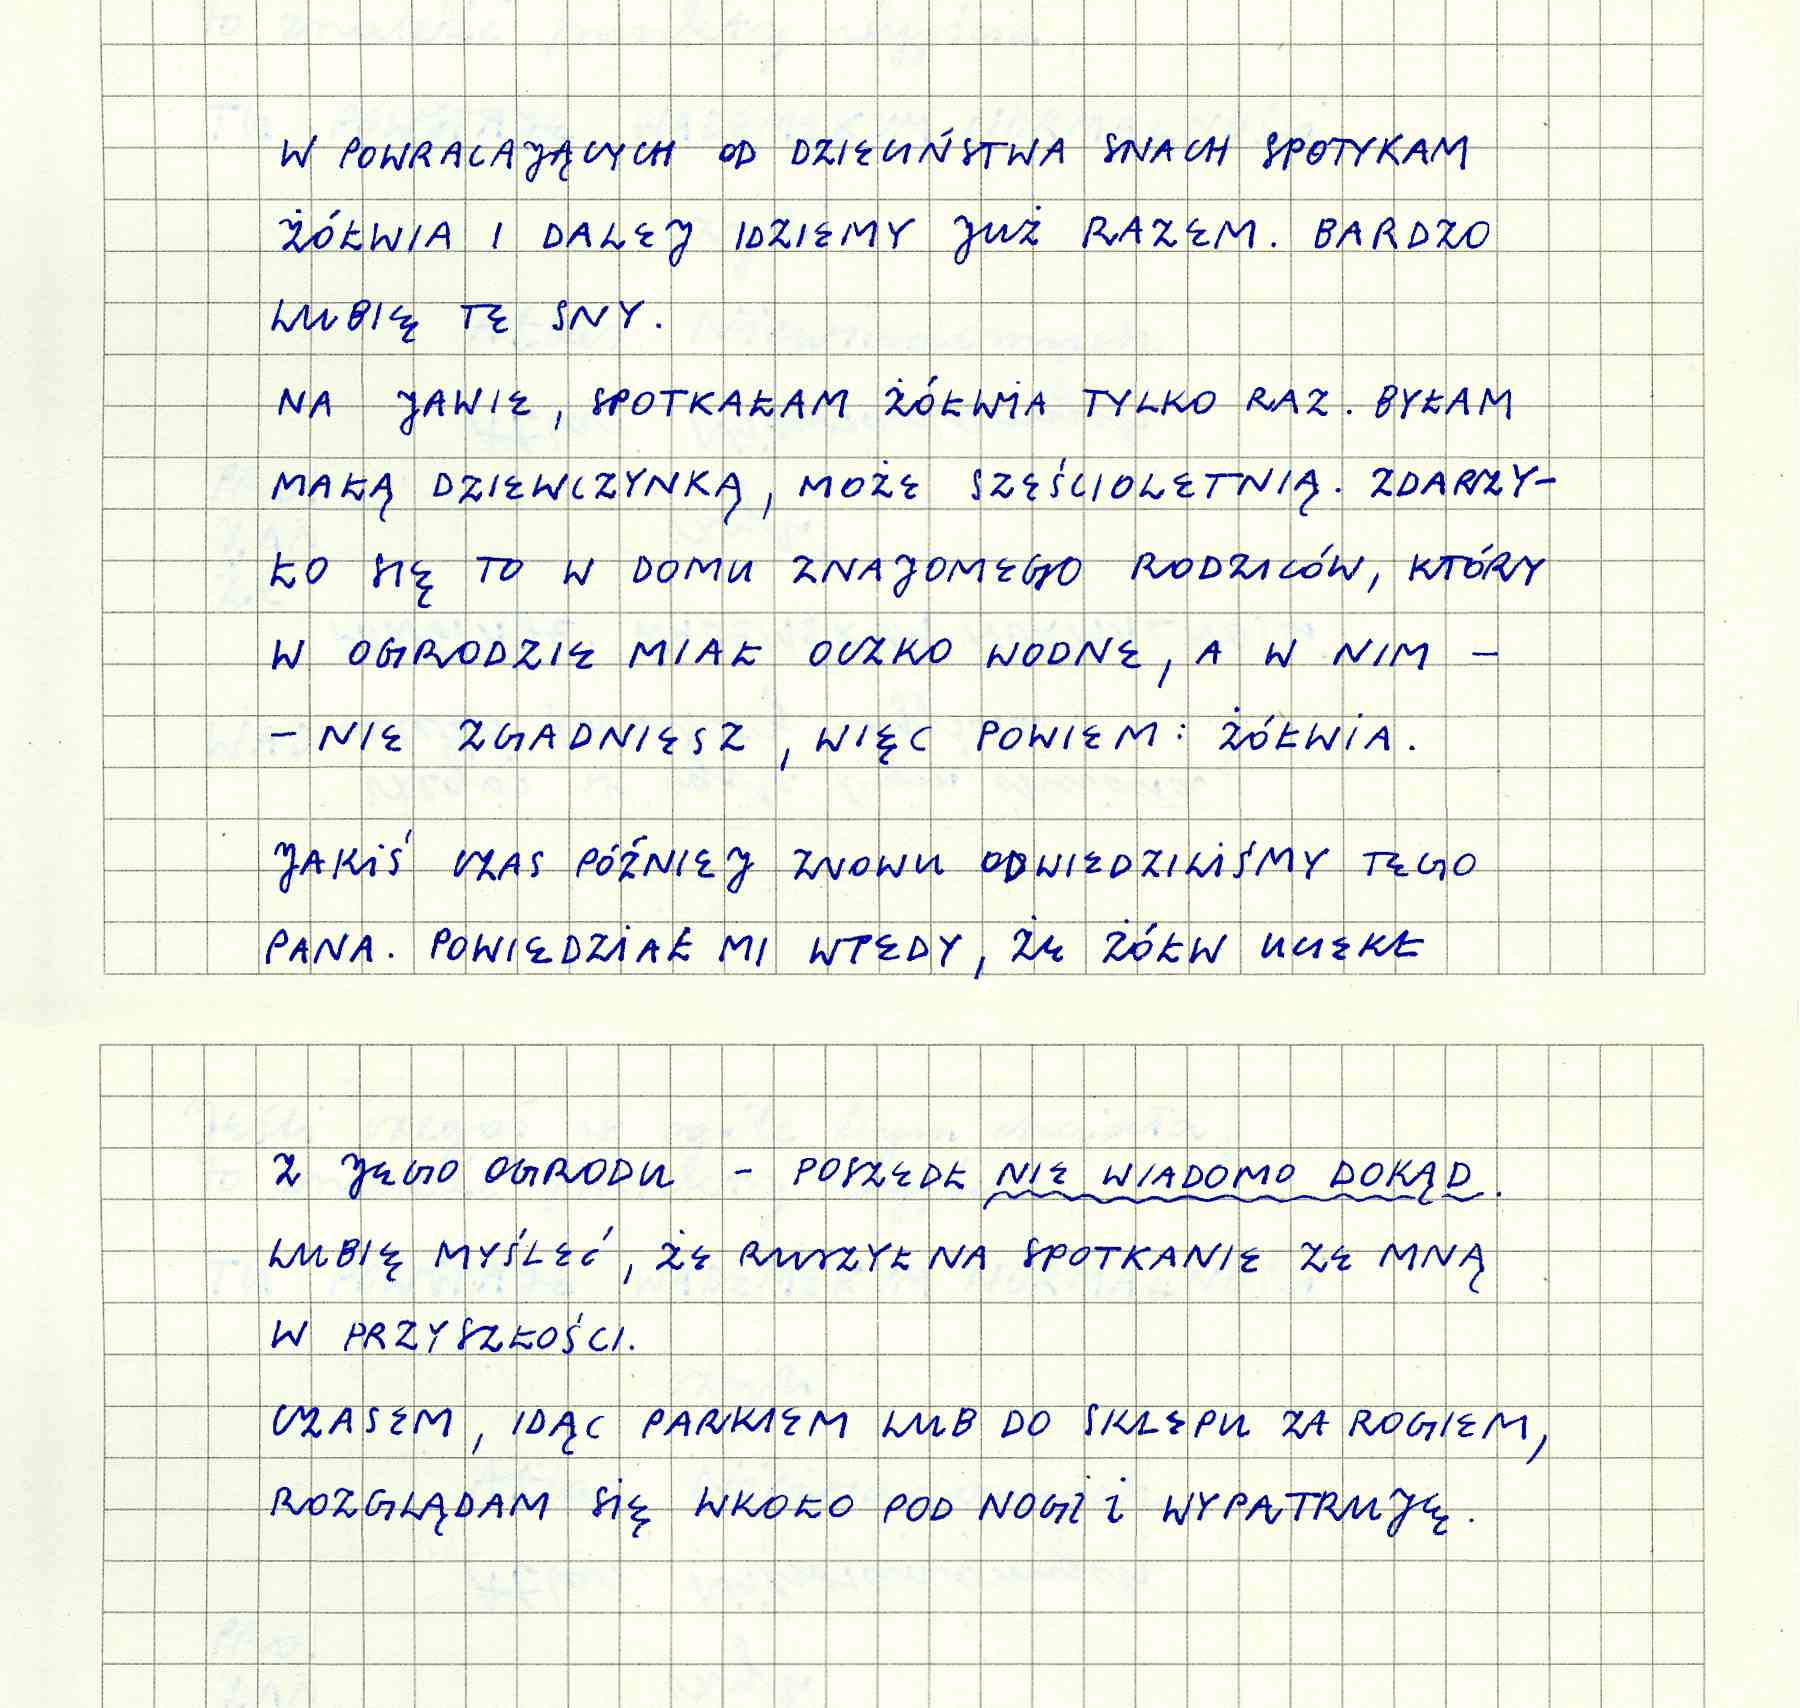 W POWRACAJĄCYCH OD DZIECIŃSTWA SNACH SPOTYKAM
ŻÓŁWIA I DALEJ IDZIEMY JUŻ RAZEM. BARDZO
LUBIĘ TE SNY.
NA JAWIE, SPOTKAŁAM ŻÓŁWIA TYLKO RAZ. BYŁAM
MAŁĄ DZIEWCZYNKĄ, MOŻE SZEŚCIOLETNIĄ. ZDARZY-
ŁO SIĘ TO W DOMU ZNAJOMEGO RODZICÓW, KTÓRY
W OGRODZIE MIAŁ OCZKO WODNE, A W NIM –
– NIE ZGADNIESZ, WIĘC POWIEM: ŻÓŁWIA.
JAKIŚ CZAS PÓŹNIEJ ZNOWU ODWIEDZILIŚMY TEGO
PANA. POWIEDZIAŁ MI WTEDY, ŻE ŻÓŁW UCIEKŁ
Z JEGO OGRODU – POSZEDŁ NIE WIADOMO DOKĄD.
LUBIĘ MYŚLEĆ, ŻE RUSZYŁ NA SPOTKANIE ZE MNĄ
W PRZYSZŁOŚCI.
CZASEM, IDĄC PARKIEM LUB DO SKLEPU ZA ROGIEM,
ROZGLĄDAM SIĘ WKOŁO POD NOGI I WYPATRUJĘ.